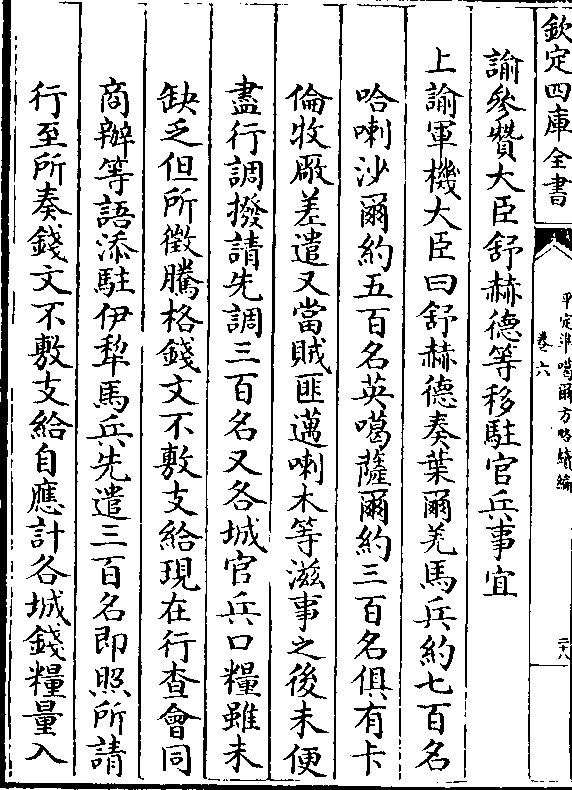 欽定四庫全書
平定準噶爾方略續編
卷六
二十八
諭參贊大臣舒赫德等移駐官兵事宜
上諭軍機大臣曰舒赫德奏葉爾羌馬兵約七百名
哈喇沙爾約五百名英噶薩爾約三百名俱有卡
倫牧厰差遣又當賊匪邁喇木等滋事之後未便
盡行調撥請先調三百名又各城官兵口糧雖未
缺乏但所徵騰格錢文不敷支給現在行查會同
商辦等語添駐伊犁馬兵先遣三百名即照所請
行至所奏錢文不敷支給自應計各城錢糧量入